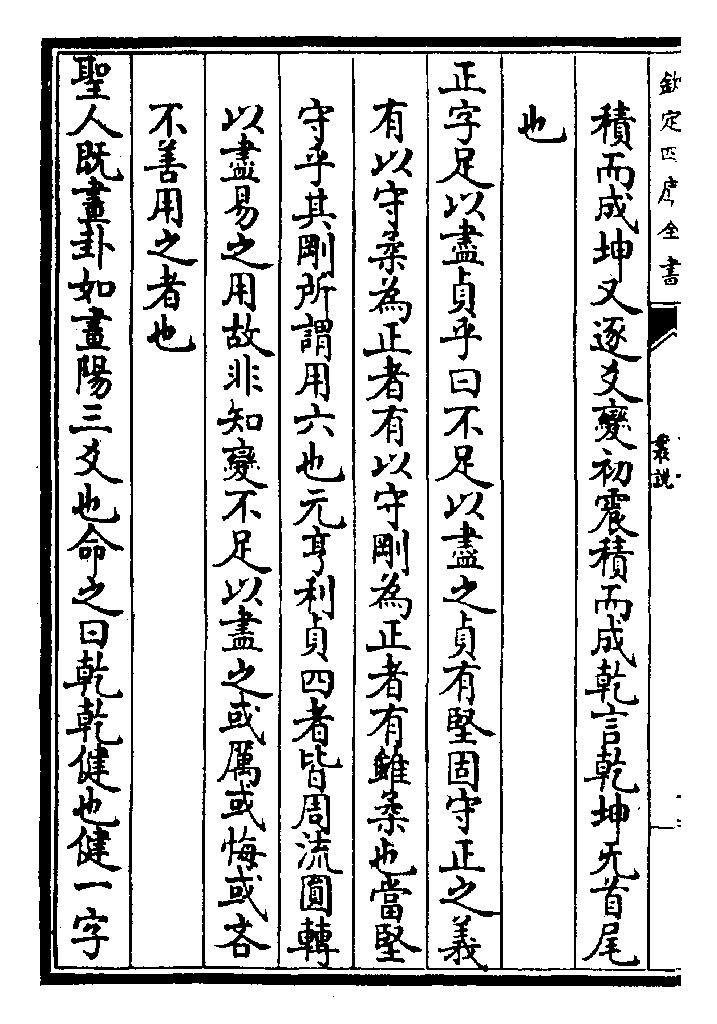 欽定四庫全書
叢說
積而成坤又逐爻變初震積而成乾言乾坤无首尾
也
正字足以盡貞乎曰不足以盡之貞有堅固守正之義
有以守柔為正者有以守剛為正者有雖柔也當堅
守乎其剛所謂用六也元亨利貞四者皆周流圓轉
以盡易之用故非知變不足以盡之或厲或悔或吝
不善用之者也
聖人既畫卦如畫陽三爻也命之曰乾乾健也健一字